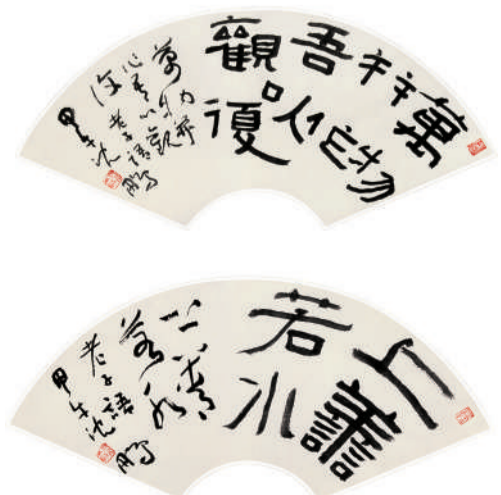 萬物
并作
吾以
觀復
萬物并
作吾以觀
復 老子語
甲午沈鵬
上善
若水
上善
若水
老子語
甲午沈鵬